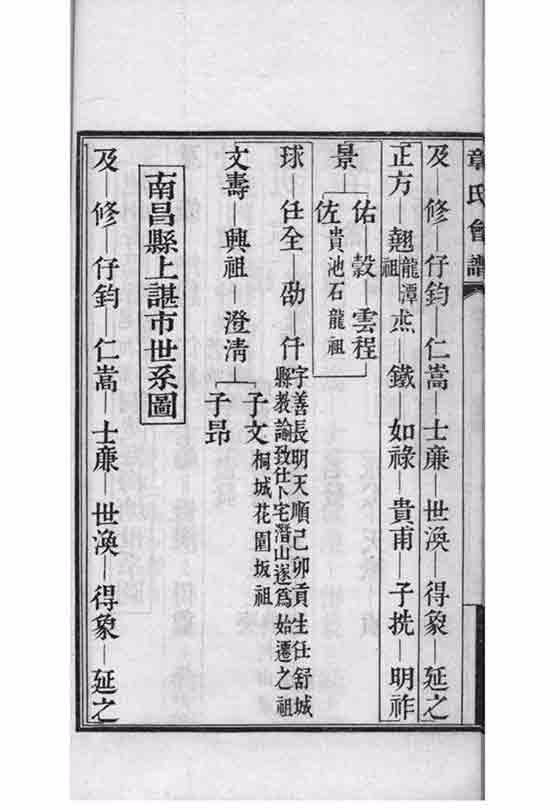 章氏會譜
及—修—仔鈞—仁嵩—士廉—世渙—得象—延之
正方—翹龍潭祖—烝—鐵—如祿—貴甫—子㧥—明祚
景—佑—穀—雲程
佐貴池石龍祖
球—任全—劭—仟字善長明天順己卯貢生任舒城
縣教諭致仕卜宅潛山遂爲始遷之祖
文壽—興祖—澄清—子文桐城花園坂祖
子昂
南昌縣上諶市世系圖
及—修—仔鈞—仁嵩—士廉—世渙—得象—延之